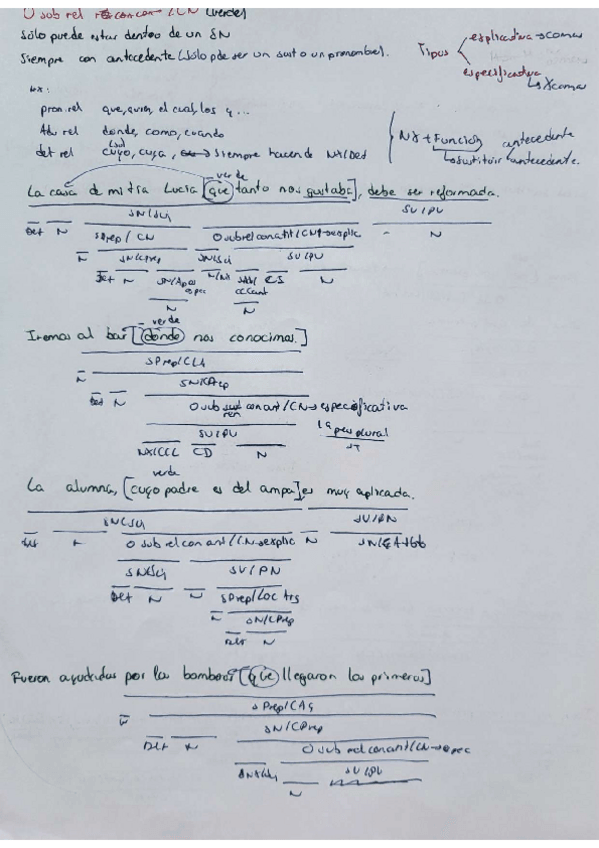 O sub rel con an / CN (verde)
Sólo puede estar dentro de un SN
Siempre con antecedente (sólo pde ser un sust o un pronombre).
Tipos
explicativa → comas
especificativa
↳ X comas
NX:
pron. rel que, quien, el cual, los q...
Adv rel donde, como, cuando
det rel cuyo, cuya, → siempre hacen de NX/Det
NX + Función
antecedente
↳ sustituir antecedente.
verde
La casa de mi tía Lucía [que tanto nos gustaba], debe ser reformada.
SN/Suj SV/PV
Det N SPrep/CN O sub rel con ant/CN → explic N
N SN/CPrep SN/Suj SV/PV
Det N SN/Apos espec N/NX CC cant N
N N
verde
Iremos al bar [donde nos conocimos.]
SPrep/CCL
N SN/CPrep
Det N O sub rel con ant/CN → especificativa
SV/PV 1ª pers plural
NX/CCL CD N
verde
La alumna, [cuyo padre es del ampa] es muy aplicada.
SN/Suj SV/PN
Det N O sub rel con ant/CN → explic N
SN/Suj SV/PN
Det N N SPrep/Loc
N SN/CPrep
Det N
Fueron ayudadas por los bomberos [que llegaron los primeros]
SPrep/CAg
N SN/CPrep
Det N O sub rel con ant/CN → espec
SV/PV
N